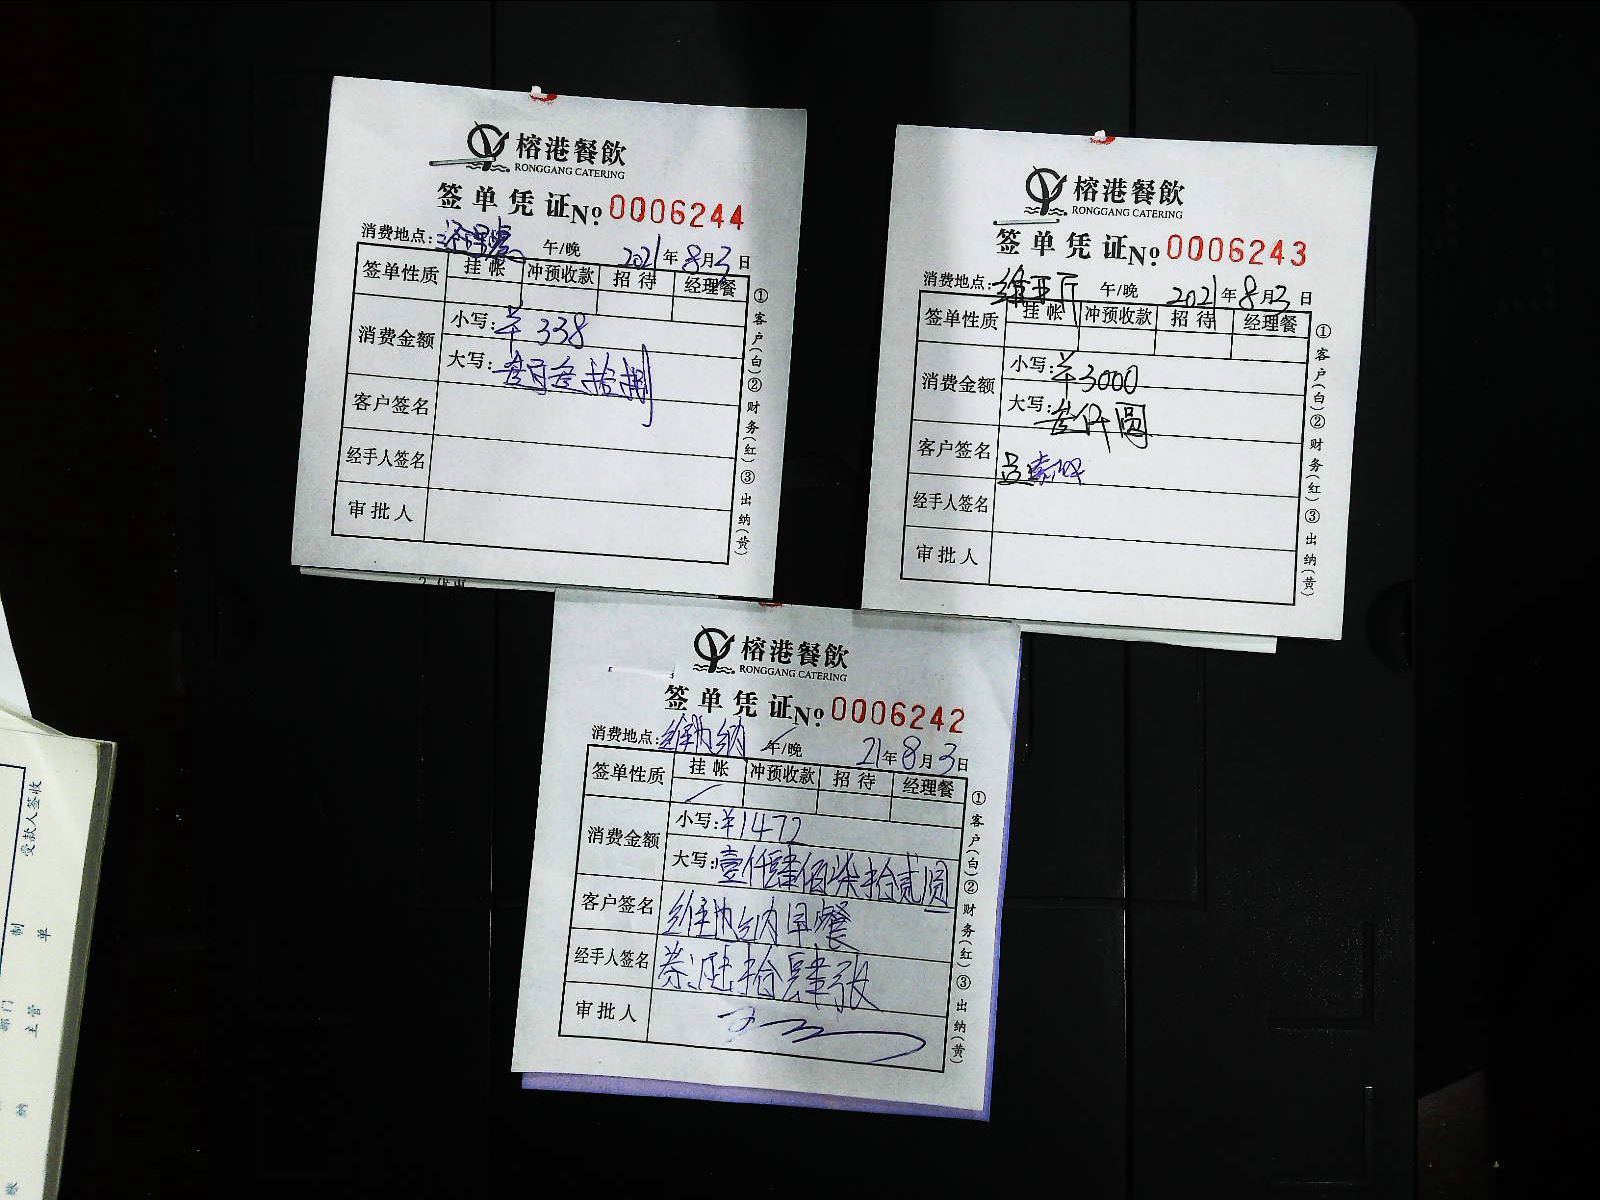 榕港餐飲
RONGGANG CATERING
签单凭证 No. 0006244
消费地点: 午/晚 2021年8月3日
签单性质 挂帐 冲预收款 招待 经理餐
消费金额 小写: ¥338
大写: 叁百叁拾捌
客户签名
经手人签名
审批人
①客户(白)②财务(红)③出纳(黄)
榕港餐飲
RONGGANG CATERING
签单凭证 No. 0006243
消费地点: 维亚厅 午/晚 2021年8月3日
签单性质 挂帐 冲预收款 招待 经理餐
消费金额 小写: ¥3000
大写: 叁仟圆
客户签名
经手人签名
审批人
①客户(白)②财务(红)③出纳(黄)
榕港餐飲
RONGGANG CATERING
签单凭证 No. 0006242
消费地点: 维也纳 午/晚 21年8月3日
签单性质 挂帐 冲预收款 招待 经理餐
消费金额 小写: ¥1472
大写: 壹仟肆佰柒拾贰圆
客户签名 维也纳早餐
经手人签名 券陆拾肆张
审批人
①客户(白)②财务(红)③出纳(黄)
受款人签收
制单
部门主管